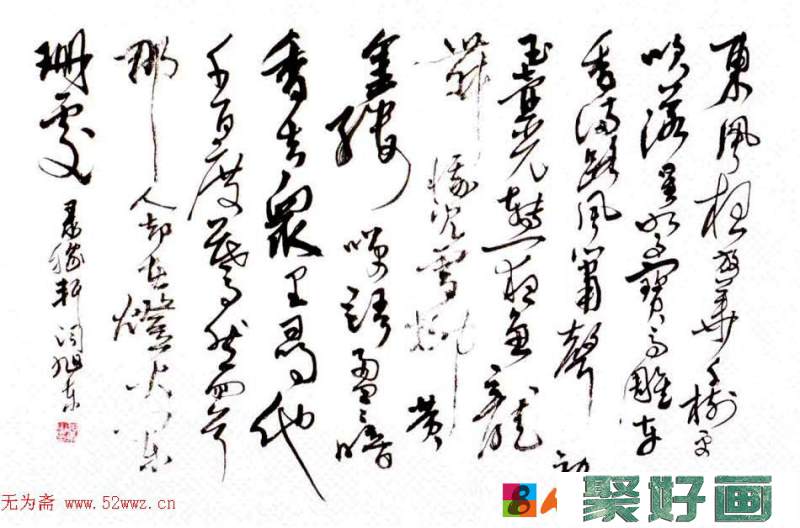 東風夜放華千樹更
吹落星如雨寶馬雕車
香滿路風簫聲動
玉壺光轉一夜魚龍
舞蛾兒雪柳黃
金縷笑語盈盈暗
香去眾里尋他
千百度驀然回首
那人却在燈火闌
珊處
軒閆旭東
无为斋 www.52wwz.cn
聚好画